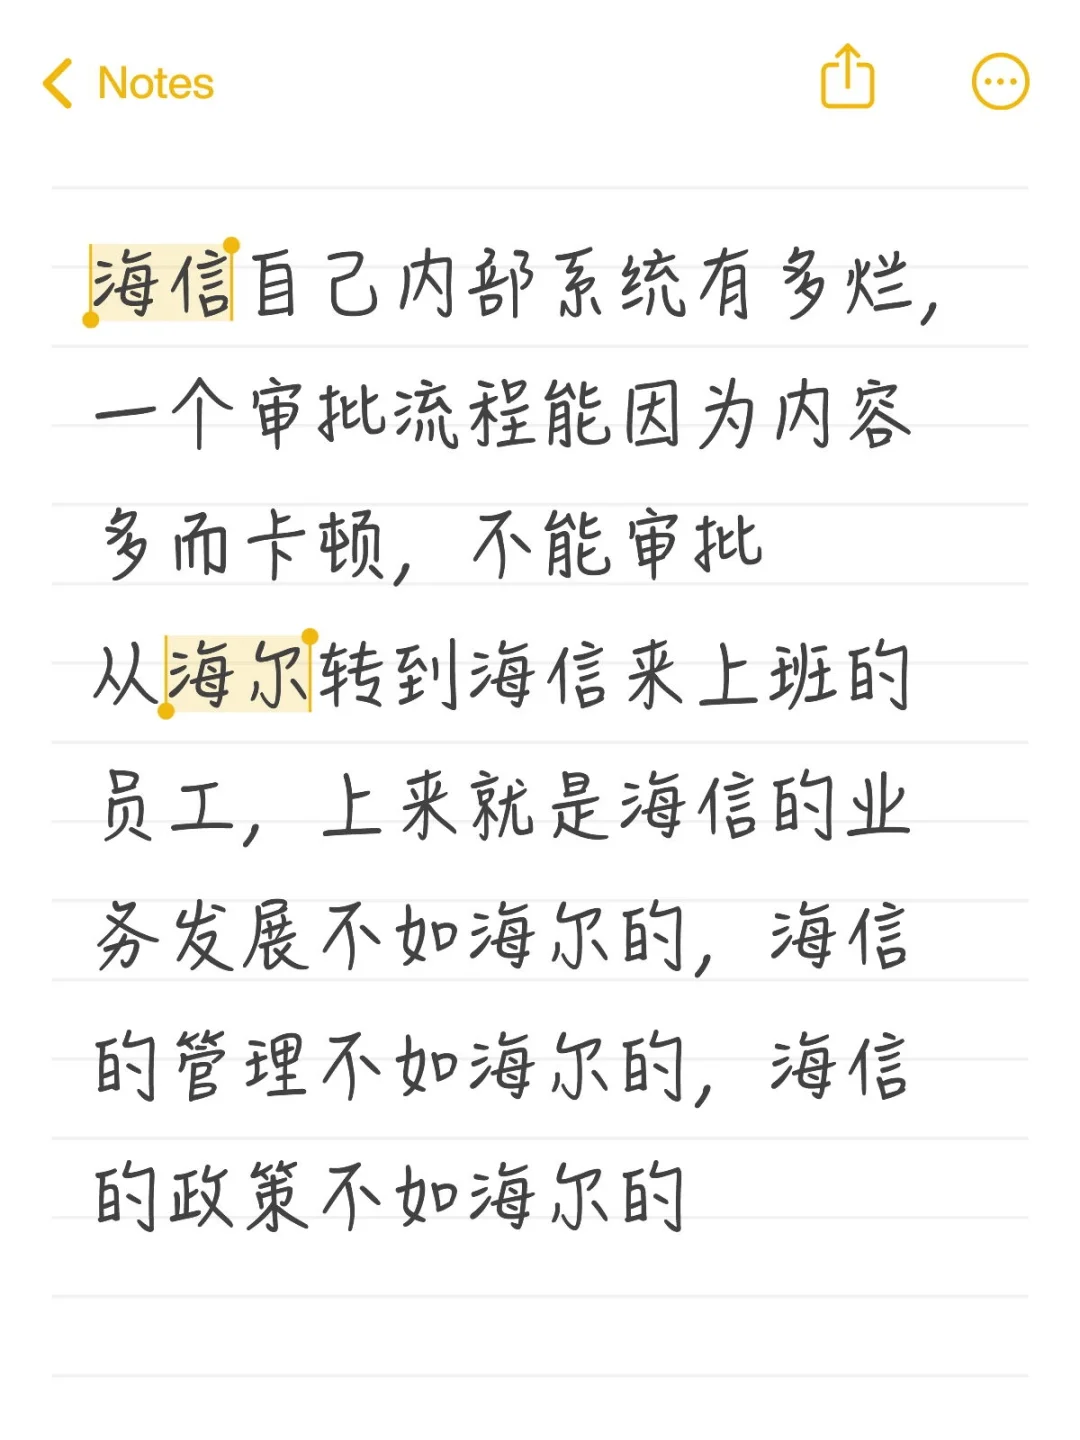 Notes
海信自己内部系统有多烂,
一个审批流程能因为内容
多而卡顿, 不能审批
从海尔转到海信来上班的
员工, 上来就是海信的业
务发展不如海尔的, 海信
的管理不如海尔的, 海信
的政策不如海尔的